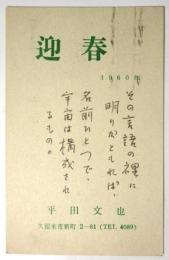 迎春
1960年
その言語の裡に
明りがともれば、
名前ひとつで、
宇宙は構成され
るもの。
平田文也
久留米市新町 2—81 (TEL. 4089)